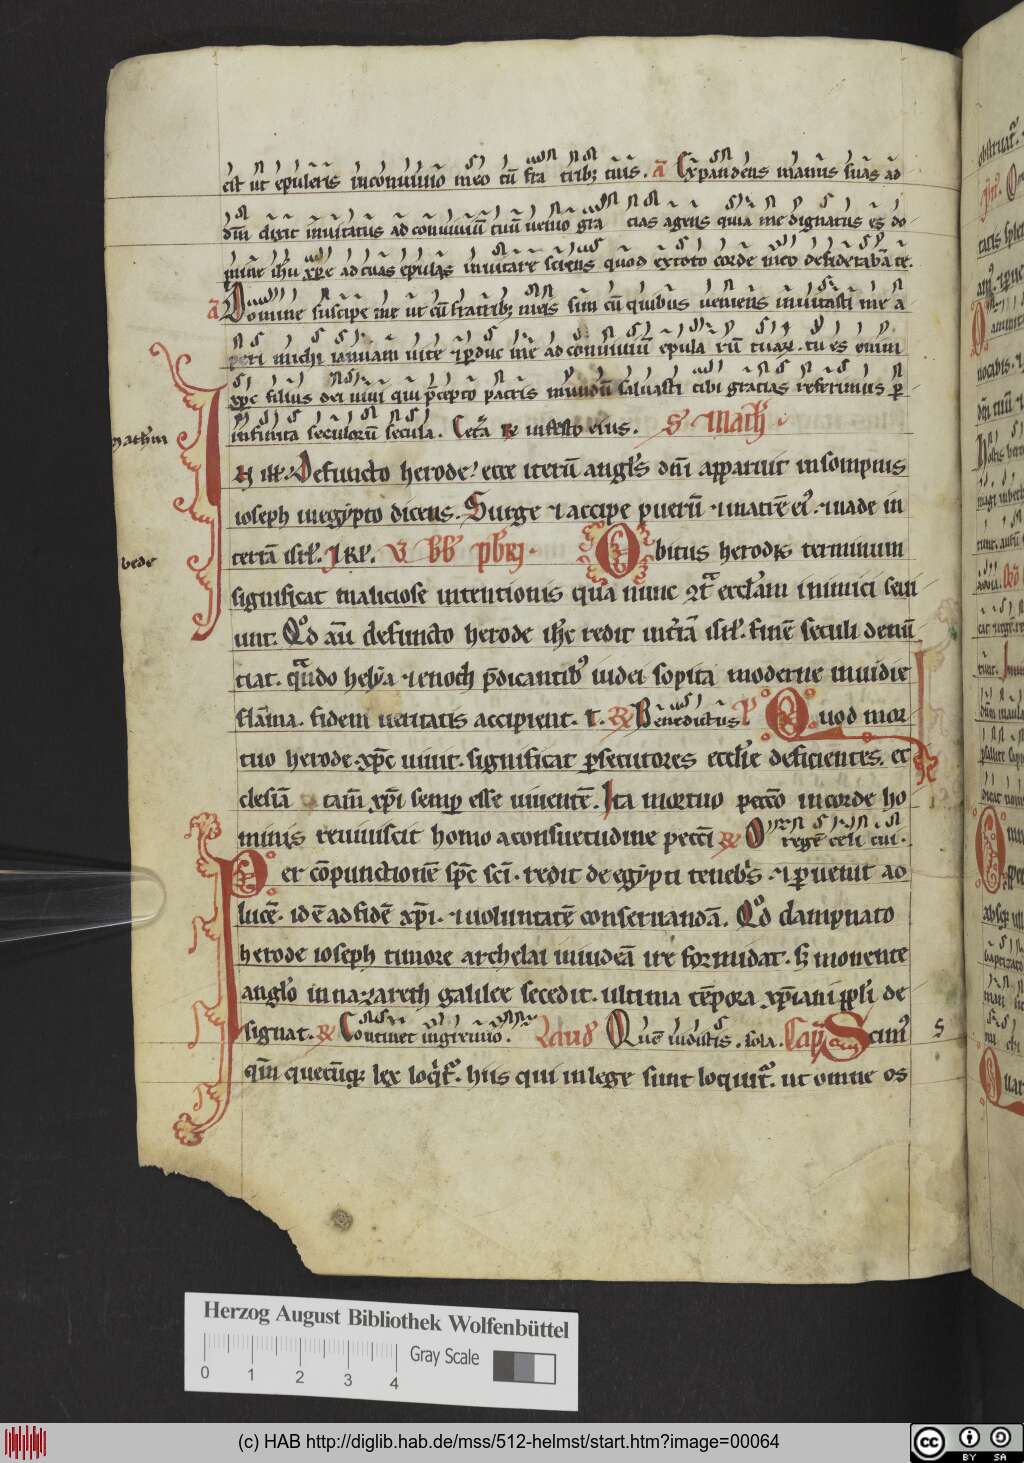 est ut epuleris inconuiuio meo cū fra tribꝫ tuis. a᷎ Expandens manus suas ad
dn̄m dixit inuitatus ad conuiuiū tuū uenio gra cias agens quia me dignatus es do
mine ihū xp̄e ad tuas epulas inuitare sciens quod extoto corde meo desiderabā te.
a᷎ Domine suscipe me ut cū fratribꝫ meis sim cū quibus ueniens inuitasti me a
peri michi ianuam uite ⁊ ꝑduc me ad conuiuiū epula rū tuaꝝ. tu es enim
xp̄c filius dei uiui qui p̄cepto patris mundū saluasti tibi gratias referimus ꝑ
infinita seculorū secula. Cet̄a R̄ infesto eius. S. Math.
mathm
IN ill. Defuncto herode: ecce iterū angls dn̄i apparuit insompnis
ioseph inegypto dicens. Surge ⁊ accipe puerū ⁊ matrē eiꝰ. ⁊ uade in
terrā isrl. J Rl. V bb̄ pb̄ri. Obitus herodis terminum
bede
significat maliciose intentionis qua nunc ꝯt̄ eccl̄am inimici seui
unt. Qd̊ au᷎ defuncto herode ih̄c redit int̄rā isrl. finē seculi denū
tiat. quando helya ⁊ enoch p̄dicantibꝰ iudei sopita moderne inuidie
flāma. fidem ueritatis accipient. t. R̄ Benedictus P Quod mor
tuo herode xp̄c uiuit. significat ꝑsecutores eccl̄ie deficientes. ec
clesiā tam̄ xp̄i semꝑ esse uiuentē. Ita mortuo peccō incorde ho
minis reuiuiscit homo aconsuetudine peccī R̄ O regē celi cui.
Per cōpunctionē sp̄c scī. redit de egypti tenebs. ⁊ ꝑuenit ad
lucē. id ē ad fidē xp̄i. ⁊ uoluntatē conseruandā. Qd̊ dampnato
herode ioseph timore archelai iniudeā ire formidat. s; monente
anglo in nazareth galilee secedit. ultima tēpora xp̄iani ppl̄i de
signat. R̄ Continet ingremio. Laud Quē uidistis. sola. Cap Scimꝰ
S
qm̄ quecūqꝫ lex loqt᷑. hiis qui inlege sunt loquit᷑. ut omne os
Herzog August Bibliothek Wolfenbüttel
Gray Scale
0 1 2 3 4
(c) HAB http://diglib.hab.de/mss/512-helmst/start.htm?image=00064
cc BY SA